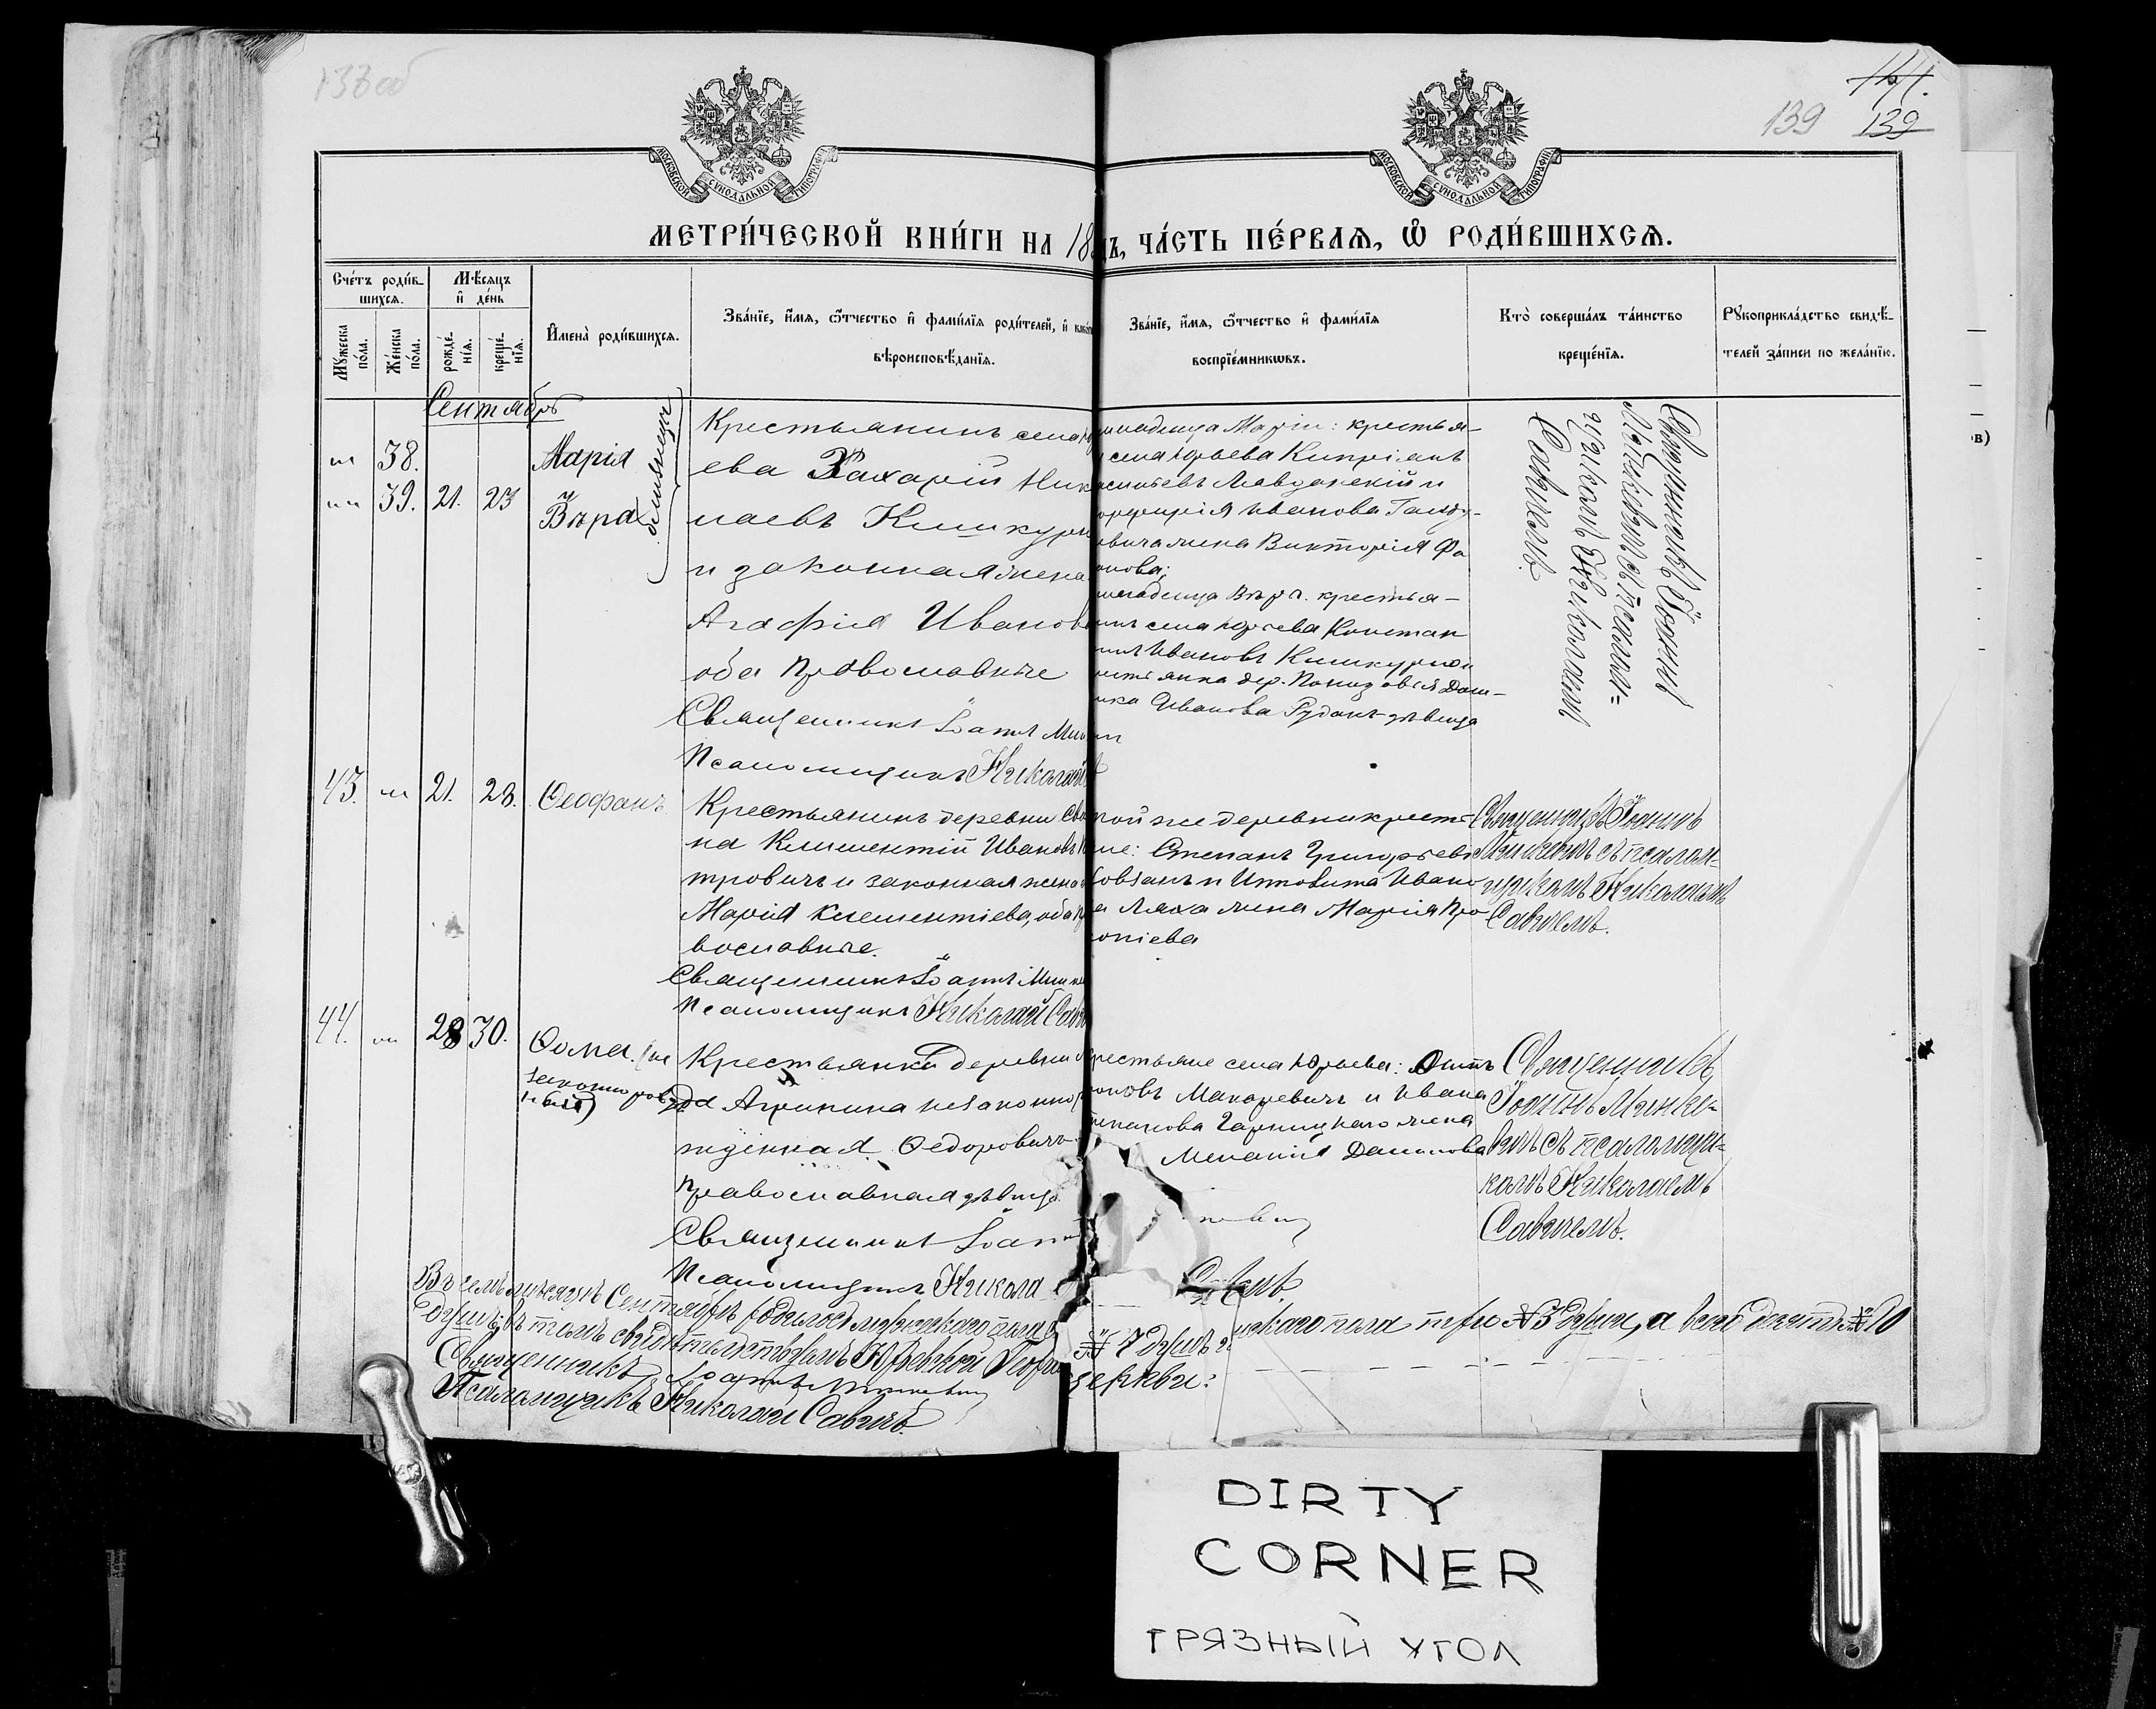 138 об
144.
139 139
МОСКОВСКОЙ СѴНОДАЛЬНОЙ ТИПОГРАФІИ
МОСКОВСКОЙ СѴНОДАЛЬНОЙ ТИПОГРАФІИ
МЕТРИ́ЧЕСКОЙ КНИ́ГИ НА 18 ДЪ, ЧА́СТЬ ПЕ́РВАѦ, Ѽ РОДИ́ВШИХСѦ.
Сче́тъ роди́в-
шихсѧ.
Мꙋ́жеска по́ла.
Же́нска по́ла.
Мѣ́сяцъ
и҆ де́нь
рожде́-
нїѧ.
креще́-
нїѧ.
И҆мена̀ роди́вшихсѧ.
Зва́нїе, и҆́мѧ, ѻ҆́тчество и҆ фами́лїѧ роди́телей, и҆
вѣроисповѣ́данїѧ.
Зва́нїе, и҆́мѧ, ѻ҆́тчество и҆ фами́лїѧ
воспрїе́мникѡвъ.
Кто̀ соверша́лъ та́инство
креще́нїѧ.
Рꙋкоприкла́дство свидѣ́-
телей за́писи по жела́нїю.
Сентябрь
38.
Марія
39. 21. 23
Вѣра
близнецы
Крестьянинъ села
ева Захарій Ник
лаевъ Кишкурн
и законная жена
Агафія Иванов
оба православные
Священникъ Іоаннъ Мин
Псаломщикъ Николай
младенца Маріи: крестья-
села Юрьева Кипріанъ
и
Иванова
жена Викторія
нова;
младенца Вѣра. крестья-
нинъ села Юрьева Констан
Ивановъ Кишкурно и
дер. Понизовья Дом-
ика Иванова Рудакъ-дѣвица
Священникъ Іоаннъ
Минкевичъ съ псалом-
щикомъ Николаемъ
Савичемъ.
43. 21. 28. Ѳеофанъ
Крестьянинъ деревни
на Климентій Ивановъ
тровичъ и законная жена
Марія Клементіева, оба пр
вославные.
Священникъ Іоаннъ Минке
Псаломщикъ Николай Сави
той же деревни крест-
не: Степанъ Григорьевъ
и Ивано
а Ляха жена Марія Про
опіева
Священникъ Іоаннъ
Минкевичъ съ псалом-
щикомъ Николаемъ
Савичемъ.
44. 28 30. Ѳома. (не
законнорож
ный)
Крестьянка деревни
Агрипина незаконно
жденная Ѳедоровичъ
православная дѣвица
Священникъ Іоанн
Псаломщикъ Никола
рестьяне села Юрьева:
Макаревичъ и Ивана
жена
Меланія Данилова
Священникъ
Іоаннъ Минке-
вичъ съ псаломщи-
комъ Николаемъ
Савичемъ.
Въ семъ мѣсяцѣ Сентябрѣ родилось мужескаго пола № 7 душъ скаго пола три № 3 души, а всего десять № 10
душъ; въ томъ свидѣтельствуемъ Юрьевской Георгі церкви:
Священникъ Іоаннъ Минкевичъ
Псаломщикъ Николай Савичъ.
в)
DIRTY
CORNER
ГРЯЗНЫЙ УГОЛ